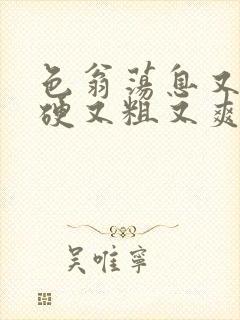 色翁荡息又
硬又粗又爽
吴唯宁